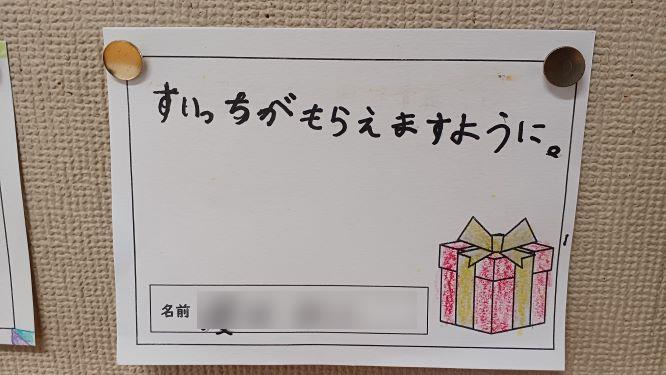 すいっちがもらえますように。
名前